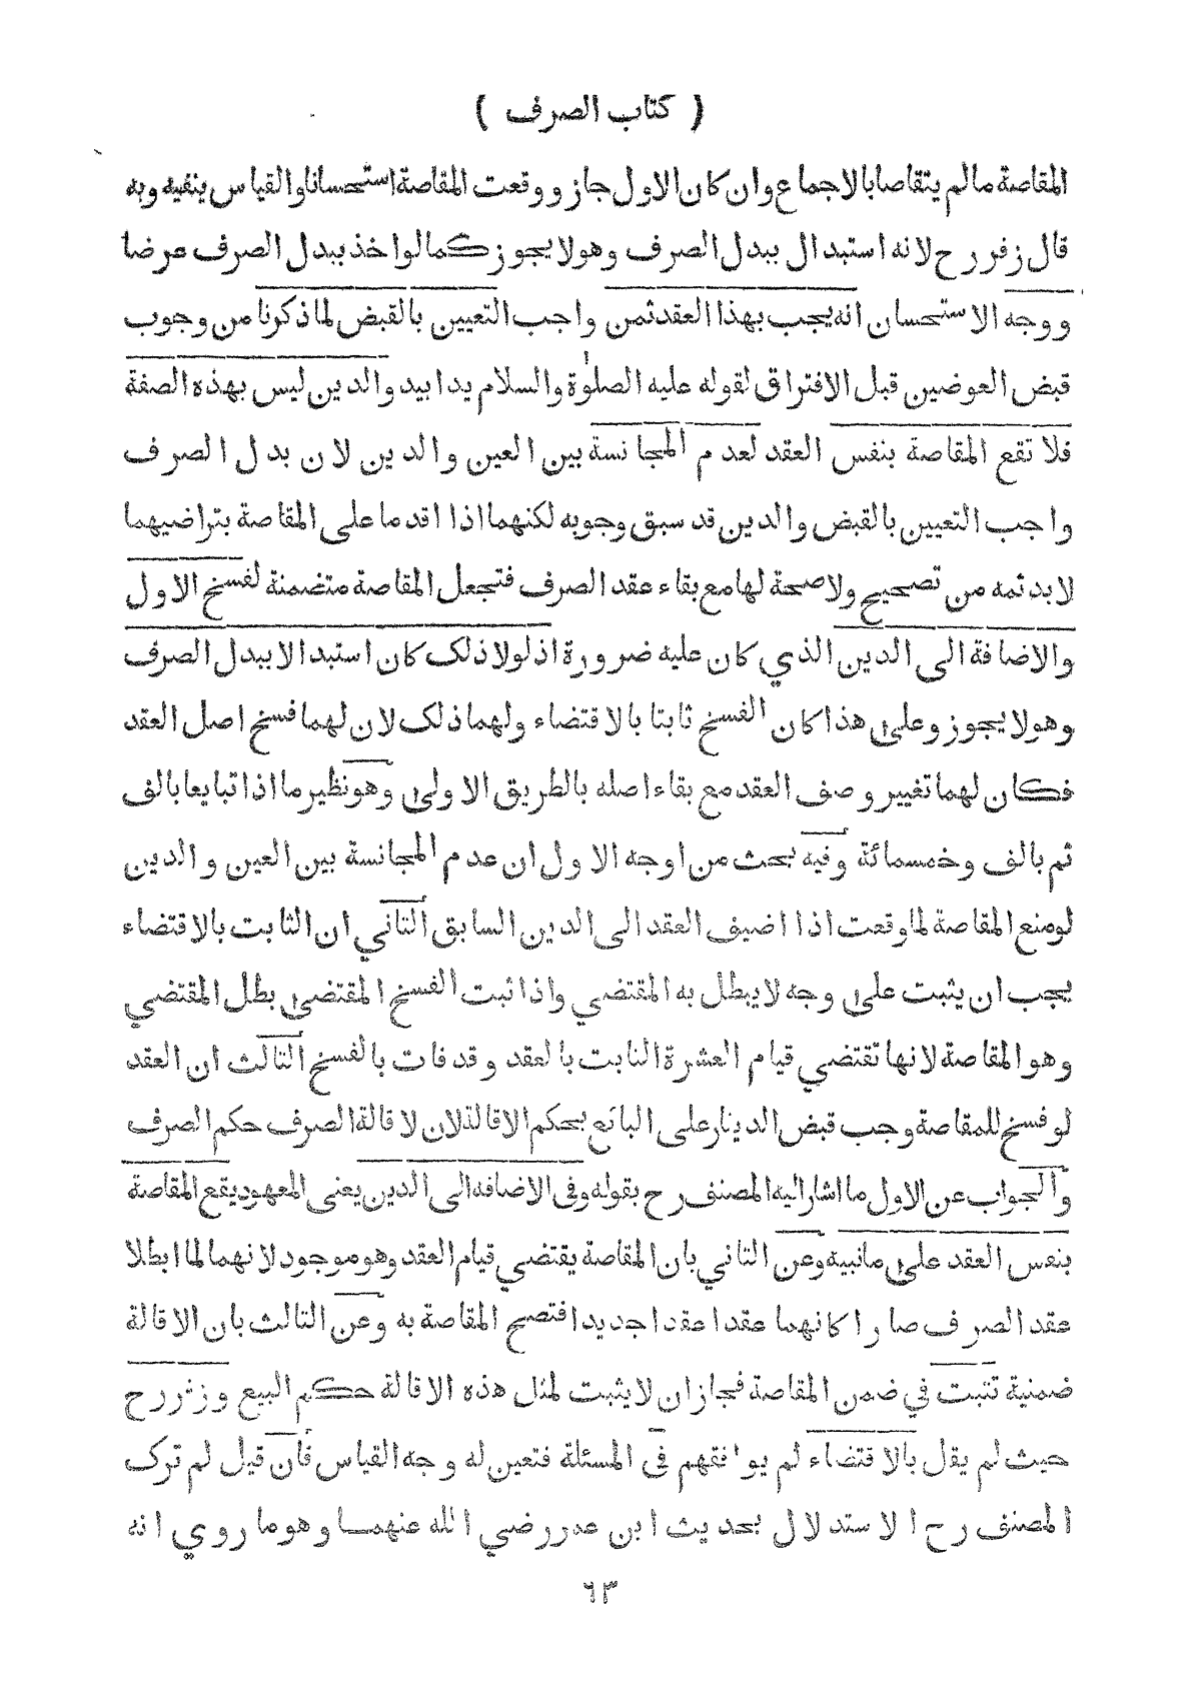 ( كتاب الصرف )
المقاصة مالم يتقاصا بالاجماع وان كان الاول جاز ووقعت المقاصة استحسانا والقياس ينفيه وبه
قال زفر رح لانه استبدال ببدل الصرف وهو لا يجوز كما لو اخذ ببدل الصرف عرضا
ووجه الاستحسان انه يجب بهذا العقد ثمن واجب التعيين بالقبض لما ذكرنا من وجوب
قبض العوضين قبل الافتراق لقوله عليه الصلوة والسلام يدا بيد والدين ليس بهذه الصفة
فلا تقع المقاصة بنفس العقد لعدم المجانسة بين العين والدين لان بدل الصرف
واجب التعيين بالقبض والدين قد سبق وجوبه لكنهما اذا اقدما على المقاصة بتراضيهما
لابد ثمه من تصحيح ولا صحة لها مع بقاء عقد الصرف فتجعل المقاصة متضمنة لفسخ الاول
والاضافة الى الدين الذي كان عليه ضرورة اذ لولا ذلك كان استبدالا ببدل الصرف
وهو لا يجوز وعلى هذا كان الفسخ ثابتا بالاقتضاء ولهما ذلك لان لهما فسخ اصل العقد
فكان لهما تغيير وصف العقد مع بقاء اصله بالطريق الاولى وهو نظير ما اذا تبايعا بالف
ثم بالف وخمسمائة وفيه بحث من اوجه الاول ان عدم المجانسة بين العين والدين
لو منع المقاصة لما وقعت اذا اضيف العقد الى الدين السابق الثاني ان الثابت بالاقتضاء
يجب ان يثبت على وجه لا يبطل به المقتضي واذا ثبت الفسخ المقتضى بطل المقتضي
وهو المقاصة لانها تقتضي قيام العشرة الثابت بالعقد وقد فات بالفسخ الثالث ان العقد
لو فسخ للمقاصة وجب قبض الدينار على البائع بحكم الاقالة لان لاقالة الصرف حكم الصرف
والجواب عن الاول ما اشار اليه المصنف رح بقوله وفى الاضافه الى الدين يعنى المعهود يقع المقاصة
بنفس العقد على ما نبيه وعن الثاني بان المقاصة يقتضي قيام العقد وهو موجود لانهما لما ابطلا
عقد الصرف صارا كانهما عقدا عقدا جديدا فتصح المقاصة به وعن الثالث بان الاقالة
ضمنية تثبت في ضمن المقاصة فجاز ان لا يثبت لمثل هذه الاقالة حكم البيع وزفر رح
حيث لم يقل بالاقتضاء لم يوافقهم فى المسئلة فتعين له وجه القياس فان قيل لم ترك
المصنف رح الاستدلال بحديث ابن عمر رضي الله عنهما وهو ما روي انه
٦٣